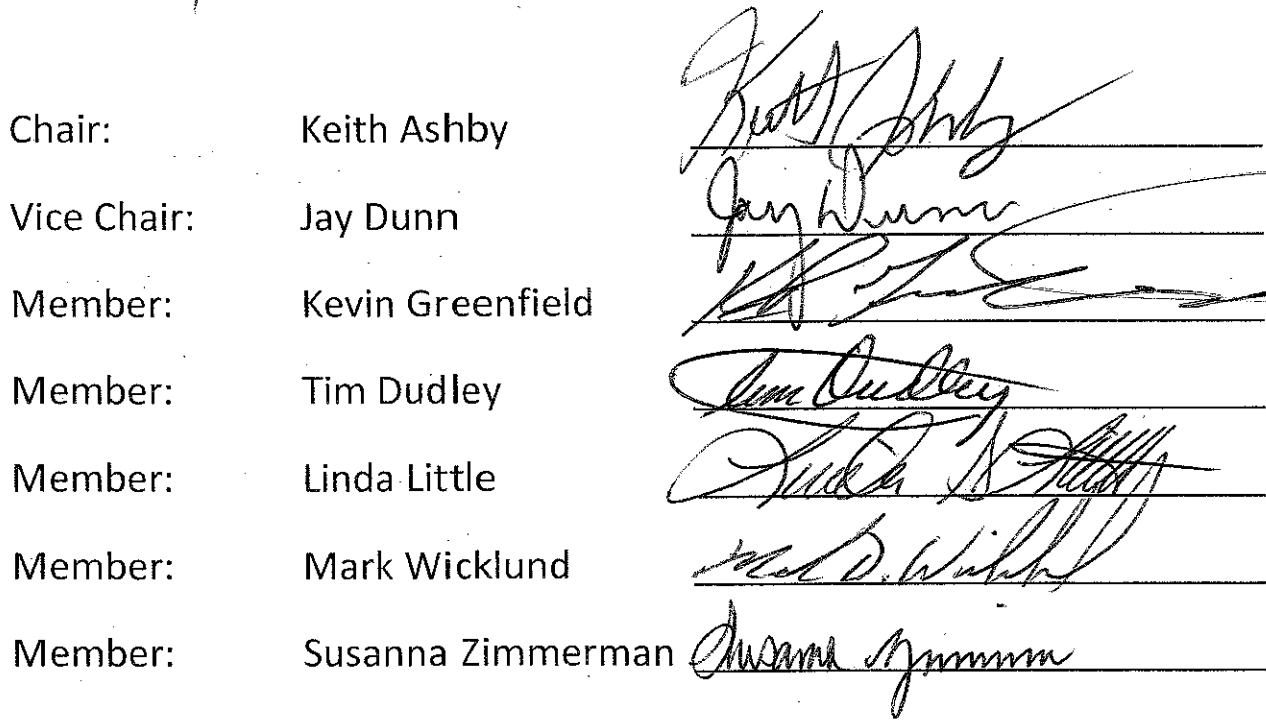 Chair: Keith Ashby Keith Ashby
Vice Chair: Jay Dunn Jay Dunn
Member: Kevin Greenfield
Member: Tim Dudley Tim Dudley
Member: Linda Little Linda Little
Member: Mark Wicklund Mark D. Wicklund
Member: Susanna Zimmerman Susanna Zimmerman